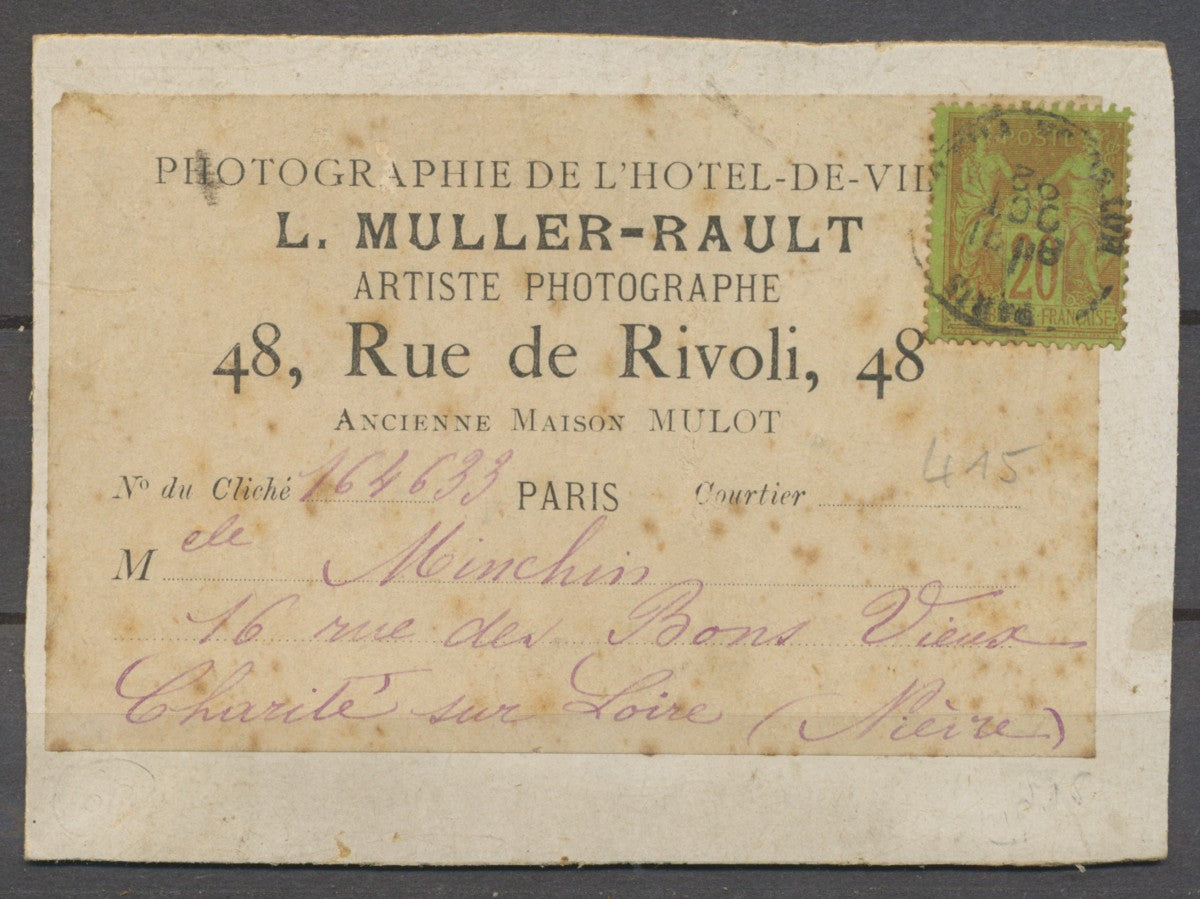 PHOTOGRAPHIE DE L'HOTEL-DE-VIL
L. MULLER-RAULT
ARTISTE PHOTOGRAPHE
48, Rue de Rivoli, 48
ANCIENNE MAISON MULOT
415
No du Cliché 164633 PARIS Courtier
M elle Minchin
16 rue des Bons Vieux
Charité sur Loire (Nièvre)
POSTE
20
FRANÇAISE
PARIS
OCT